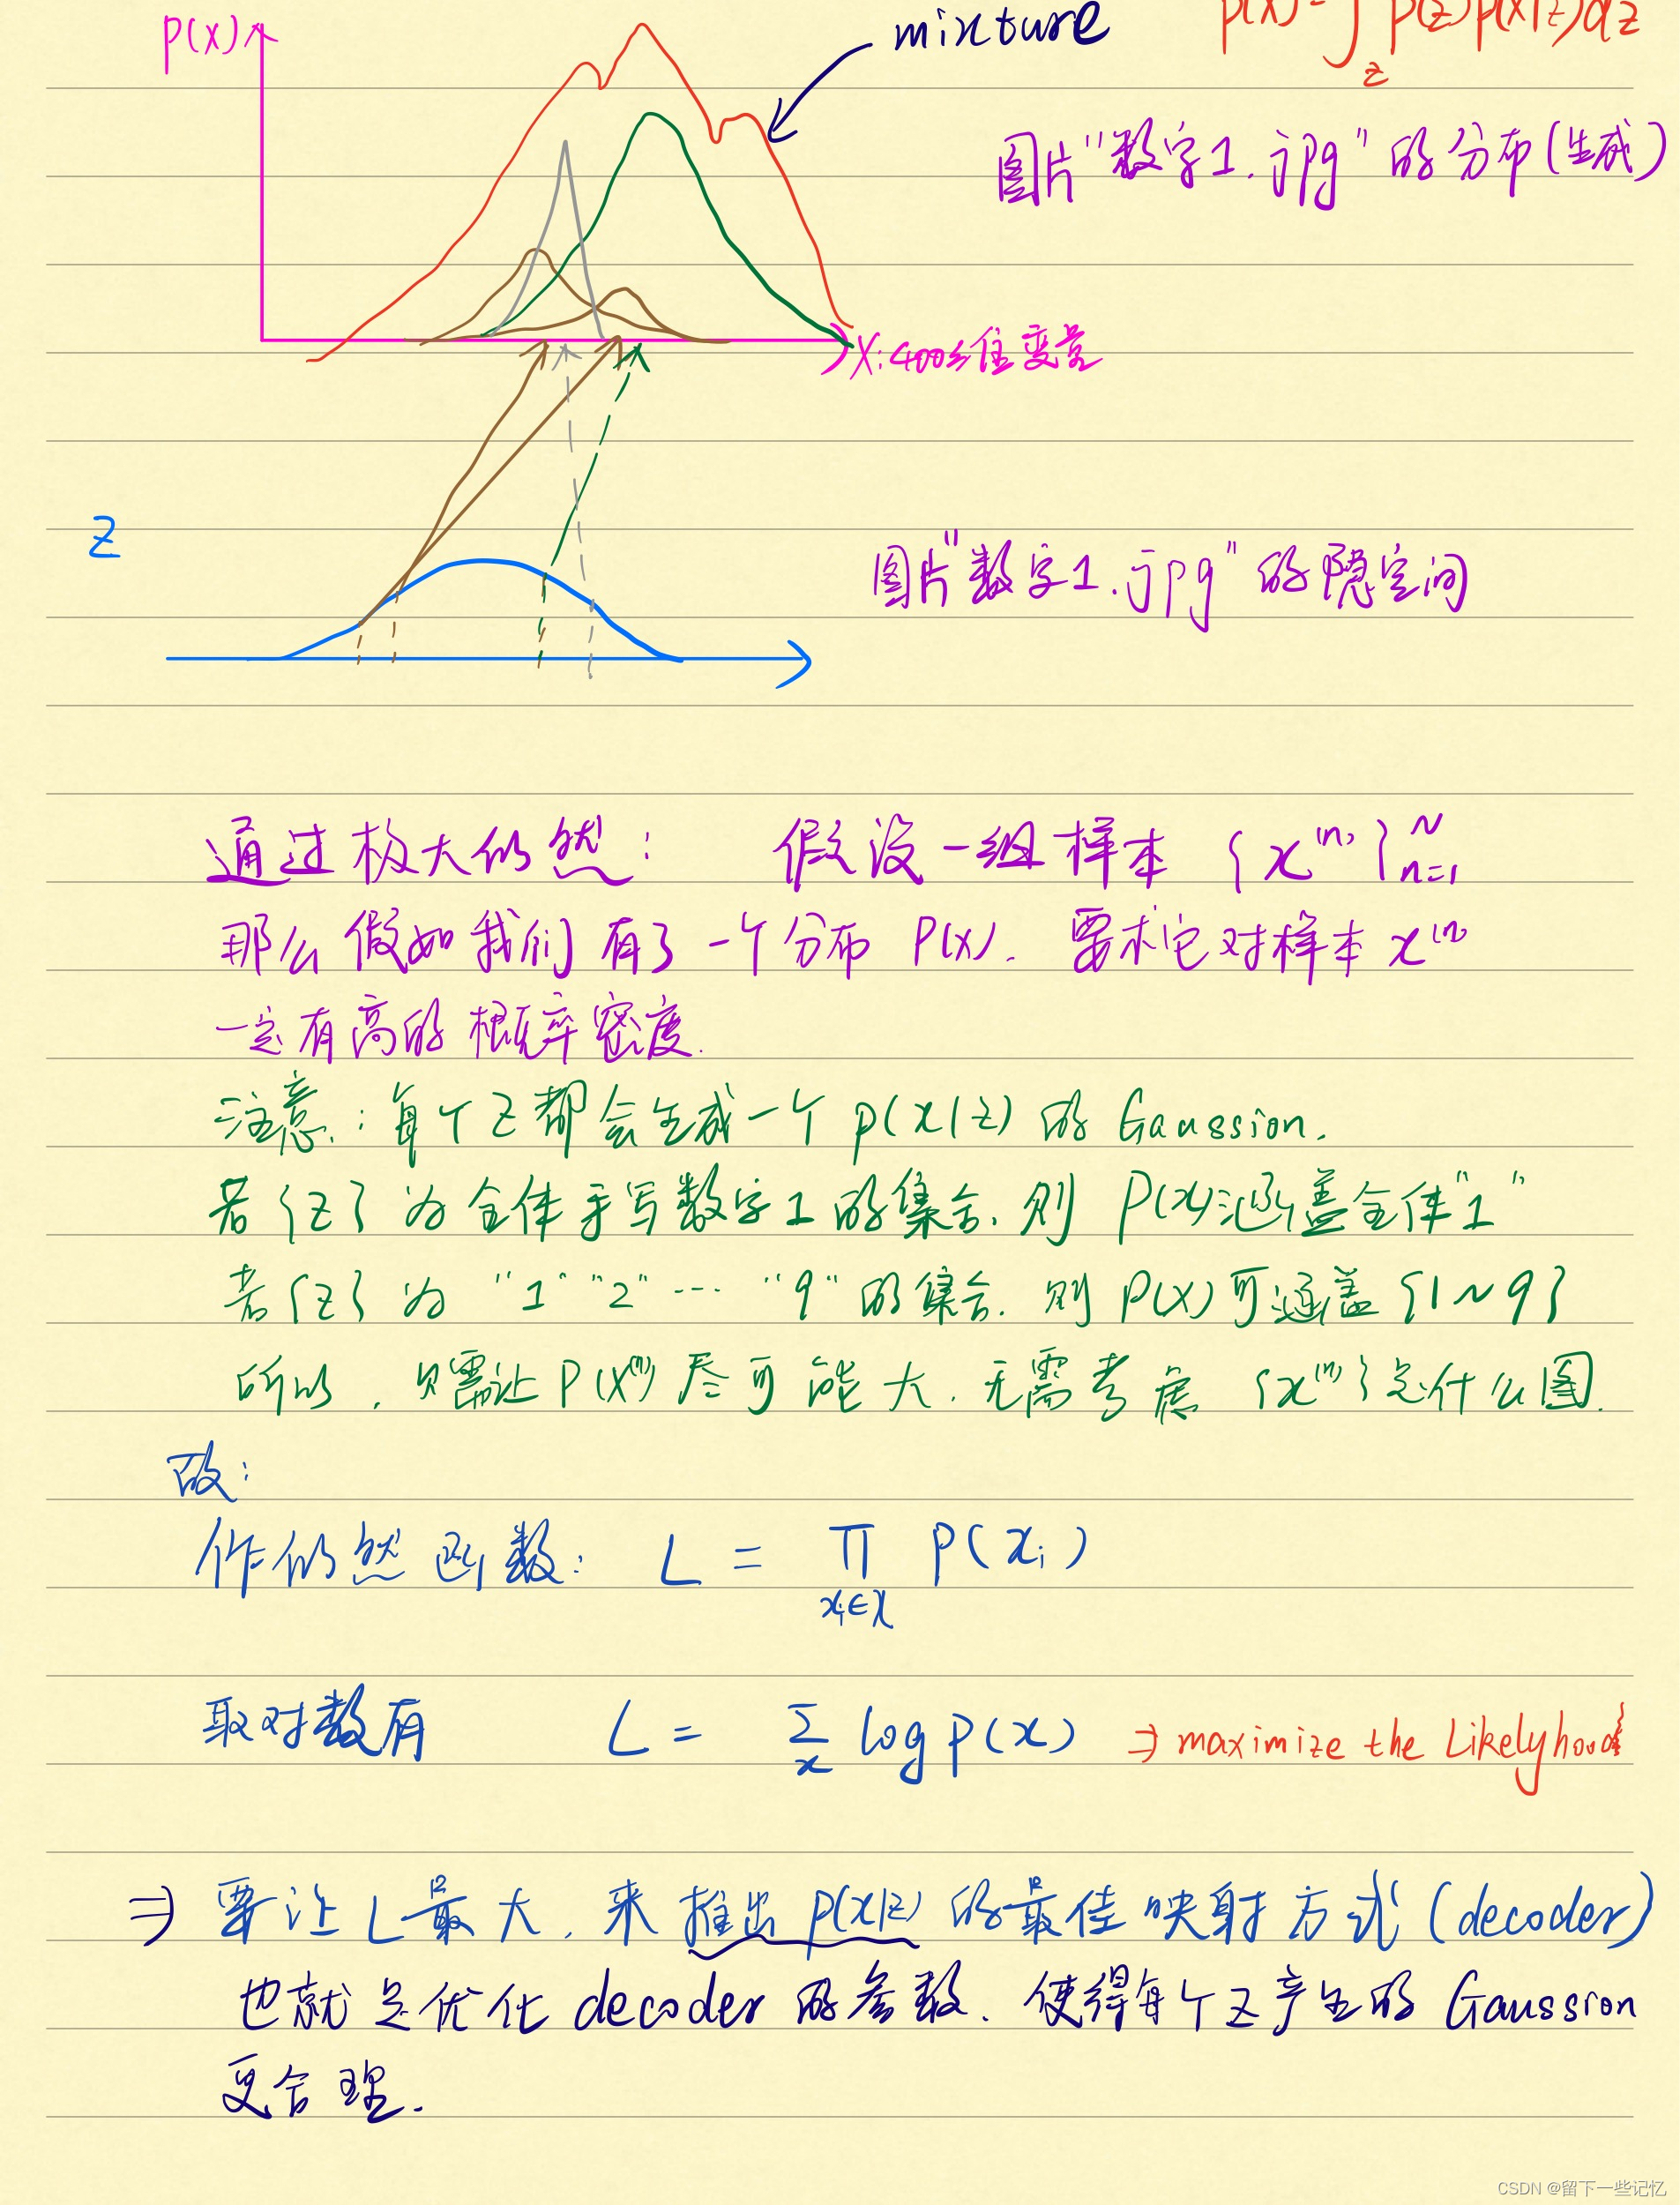 mixture
p(x)=∫_z p(z)p(x|z)dz
P(x)
图片"数字1.jpg"的分布(生成)
X:400维变量
Z
图片"数字1.jpg"的隐空间
通过极大似然: 假设一组样本 {x^(n)}_{n=1}^N
那么假如我们有了一个分布 P(x). 要求它对样本 x^(n)
一定有高的概率密度.
注意:每个Z都会生成一个 p(x|z) 的 Gaussion.
若{z}为全体手写数字1的集合,则 P(x)涵盖全体"1"
若{z}为 "1" "2" ... "9" 的集合.则 P(x)可涵盖{1~9}
所以,只需让P(x^(n))尽可能大.无需考虑 {x^(n)}是什么图.
故:
作似然函数: L = ∏_{x_i∈X} P(x_i)
取对数有 L = Σ_x log p(x) ⇒ maximize the Likelyhood
⇒ 要让L最大,来推出p(x|z)的最佳映射方式(decoder)
也就是优化decoder的参数.使得每个Z产生的Gaussion
更合理.
CSDN @留下一些记忆